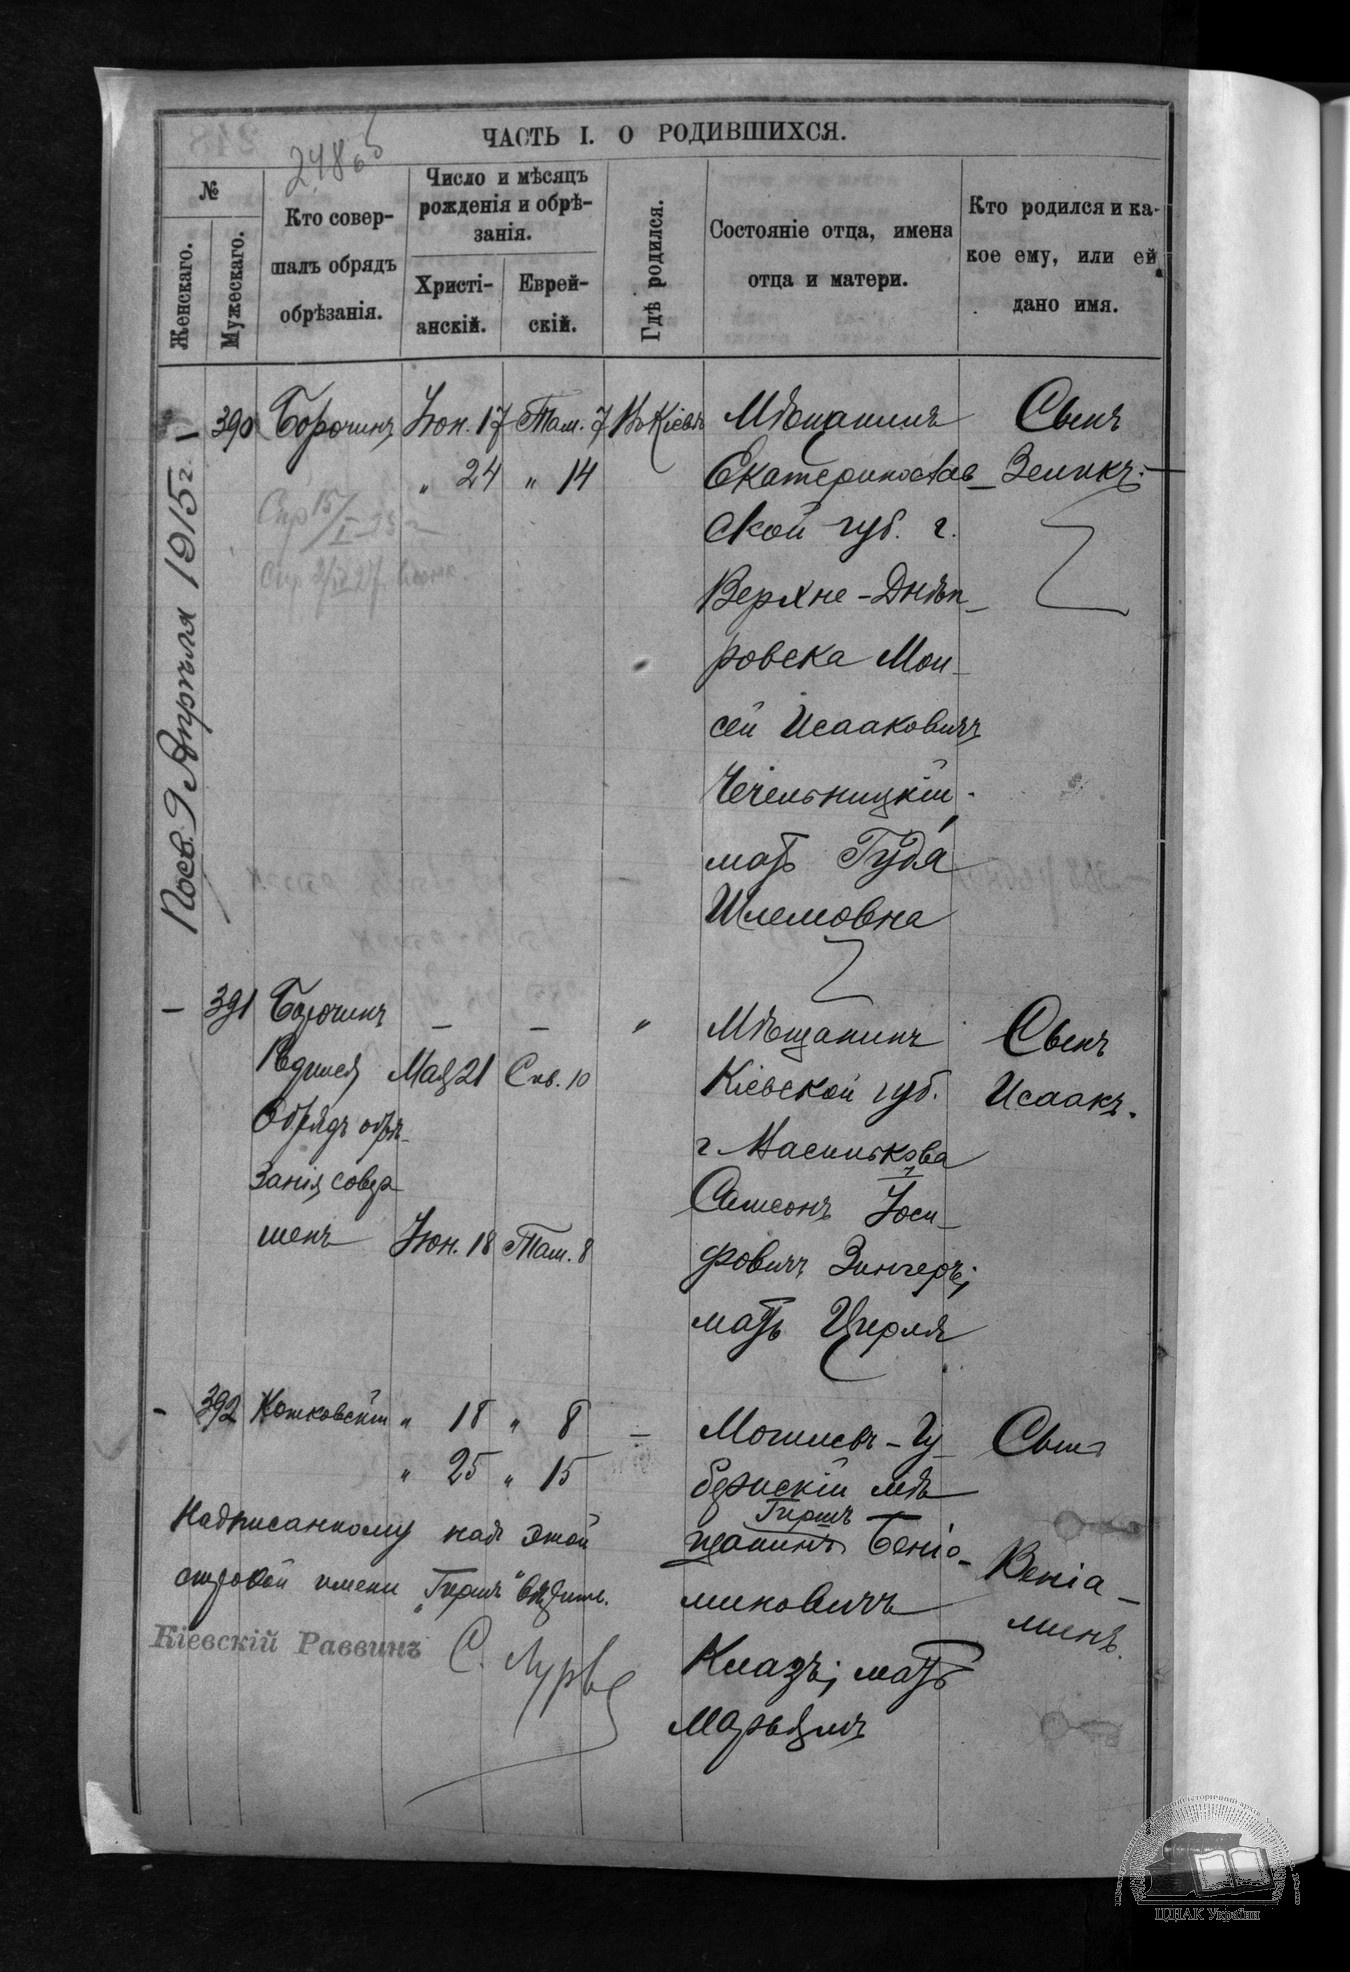 ЧАСТЬ I. О РОДИВШИХСЯ.
248 об
№
Женскаго.
Мужескаго.
Кто совер-
шалъ обрядъ
обрѣзанія.
Число и мѣсяцъ
рожденія и обрѣ-
занія.
Христі-
анскій.
Еврей-
скій.
Гдѣ родился.
Состояніе отца, имена
отца и матери.
Кто родился и ка-
кое ему, или ей
дано имя.
9 Апрѣля 1915 г.
– 390 Борочинъ Іюн. 17 Там. 7 Въ Кіевѣ
„ 24 „ 14
Мѣщанинъ
Екатеринослав-
ской губ. г.
Верхне-Днѣп-
ровска Мои-
сей Исааковичъ
Чечельницкій.
мать Гудя
Шлемовна
Сынъ
Зеликъ.
– 391 Борочинъ – – „
Родился Мая 21 Сив. 10
Обрядъ обрѣ-
занія совер
шенъ Іюн. 18 Там. 8
Мѣщанинъ
Кіевской губ.
г. Василькова
Самсонъ Іоси-
фовичъ Зингеръ;
мать Цирля
Сынъ
Исаакъ.
– 392 Котковскій „ 18 „ 8 –
„ 25 „ 15
Могилевъ-Гу
бернскій мѣ
Гиршъ
щанинъ Беніо-
миновичъ
Клазъ; мать
Марьямъ
Сынъ
Веніа-
минъ.
Надписанному надъ этой
строкой имени „Гиршъ"
Кіевскій Раввинъ С. Лурье
ЦДІАК України